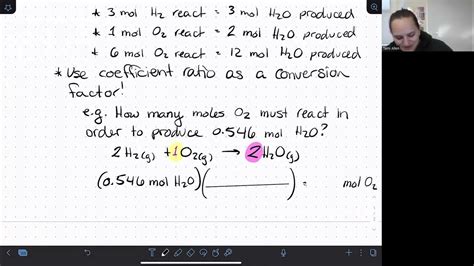 * 3 mol H₂ react = 3 mol H₂O produced
* 1 mol O₂ react = 2 mol H₂O produced
* 6 mol O₂ react = 12 mol H₂O produced
* Use coefficient ratio as a conversion
factor!
e.g. How many moles O₂ must react in
order to produce 0.546 mol H₂O?
2H₂(g) + 1O₂(g) → 2H₂O(g)
(0.546 mol H₂O)(———) = mol O₂